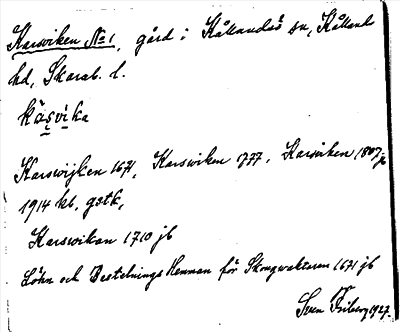 Karsviken No 1, gård i Kållandsö sn, Kålland
hd, Skarab. l.
kas̨vika
Karswijken 1671, Karswiken 1777, Karsviken 1887 jb
1914 kb, gstk,
Karswikan 1710 jb
Löhn och Bestelnings Hemman för Skougwaktaren 1671 jb
Sven Friberg 1927.